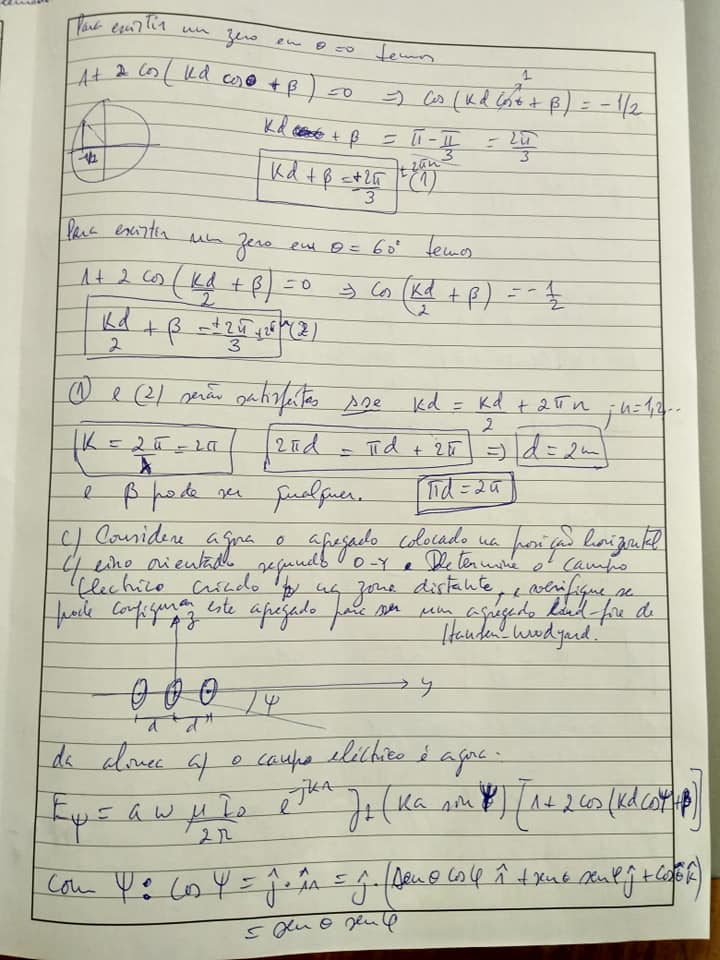 Para existir um zero em θ=0 temos
1+2 cos(Kd cosθ + β)=0 ⇒ cos(Kd cosθ + β) = -1/2
1
Kd cosθ + β = π - π/3 = 2π/3
-1/2
Kd + β = ±2π/3 ± 2πn (1)
Para existir um zero em θ = 60° temos
1+2 cos(Kd/2 + β)=0 ⇒ cos(Kd/2 + β) = -1/2
Kd/2 + β = ±2π/3 ± 2πn (2)
(1) e (2) serão satisfeitas sse Kd = Kd/2 + 2πn ; n=1,2...
K = 2π/λ = 2π 2πd = πd + 2π ⇒ d = 2m
e β pode ser qualquer. πd = 2π
c) Considere agora o agregado colocado na posição horizontal
c/ eixo orientado segundo O-Y. Determine o campo
Electrico criado na zona distante, e verifique se
pode configurar este agregado para ser um agregado End-fire de
Hansen-Woodyard.
z
y
ψ
d d
da alinea a) o campo eléctrico é agora.
Eψ = a ω μ I₀/2r e^-jkr J₁(Ka sin ψ) [1+2 cos(Kd cosψ + β)]
com ψ: cos ψ = ĵ·r̂ = ĵ·(senθ cosφ î + senθ senφ ĵ + cosθ k̂)
= senθ senφ